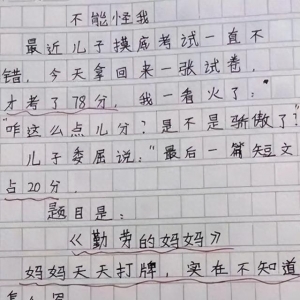 不能怪我
最近儿子摸底考试一直不
错，今天拿回来一张试卷，
才考了78分，我一看火了：
“咋这么点儿分？是不是骄傲了？”
儿子委屈说：“最后一篇短文
占20分．
题目是：
《勤劳的妈妈》
妈妈天天打牌，实在不知道